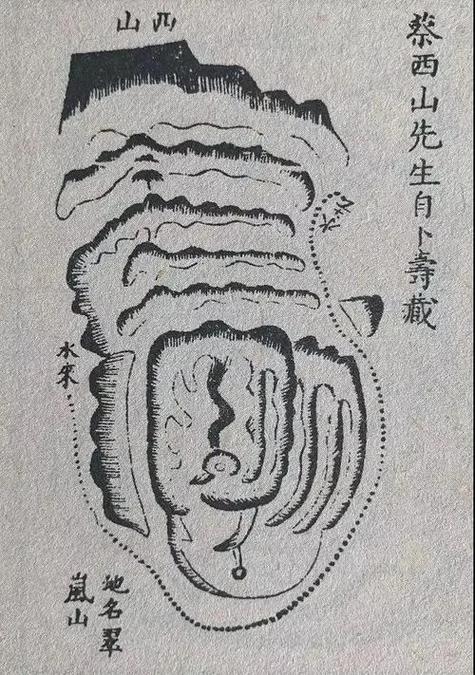 蔡西山先生自卜壽藏
西山
水去
水來
地名翠
嵐山